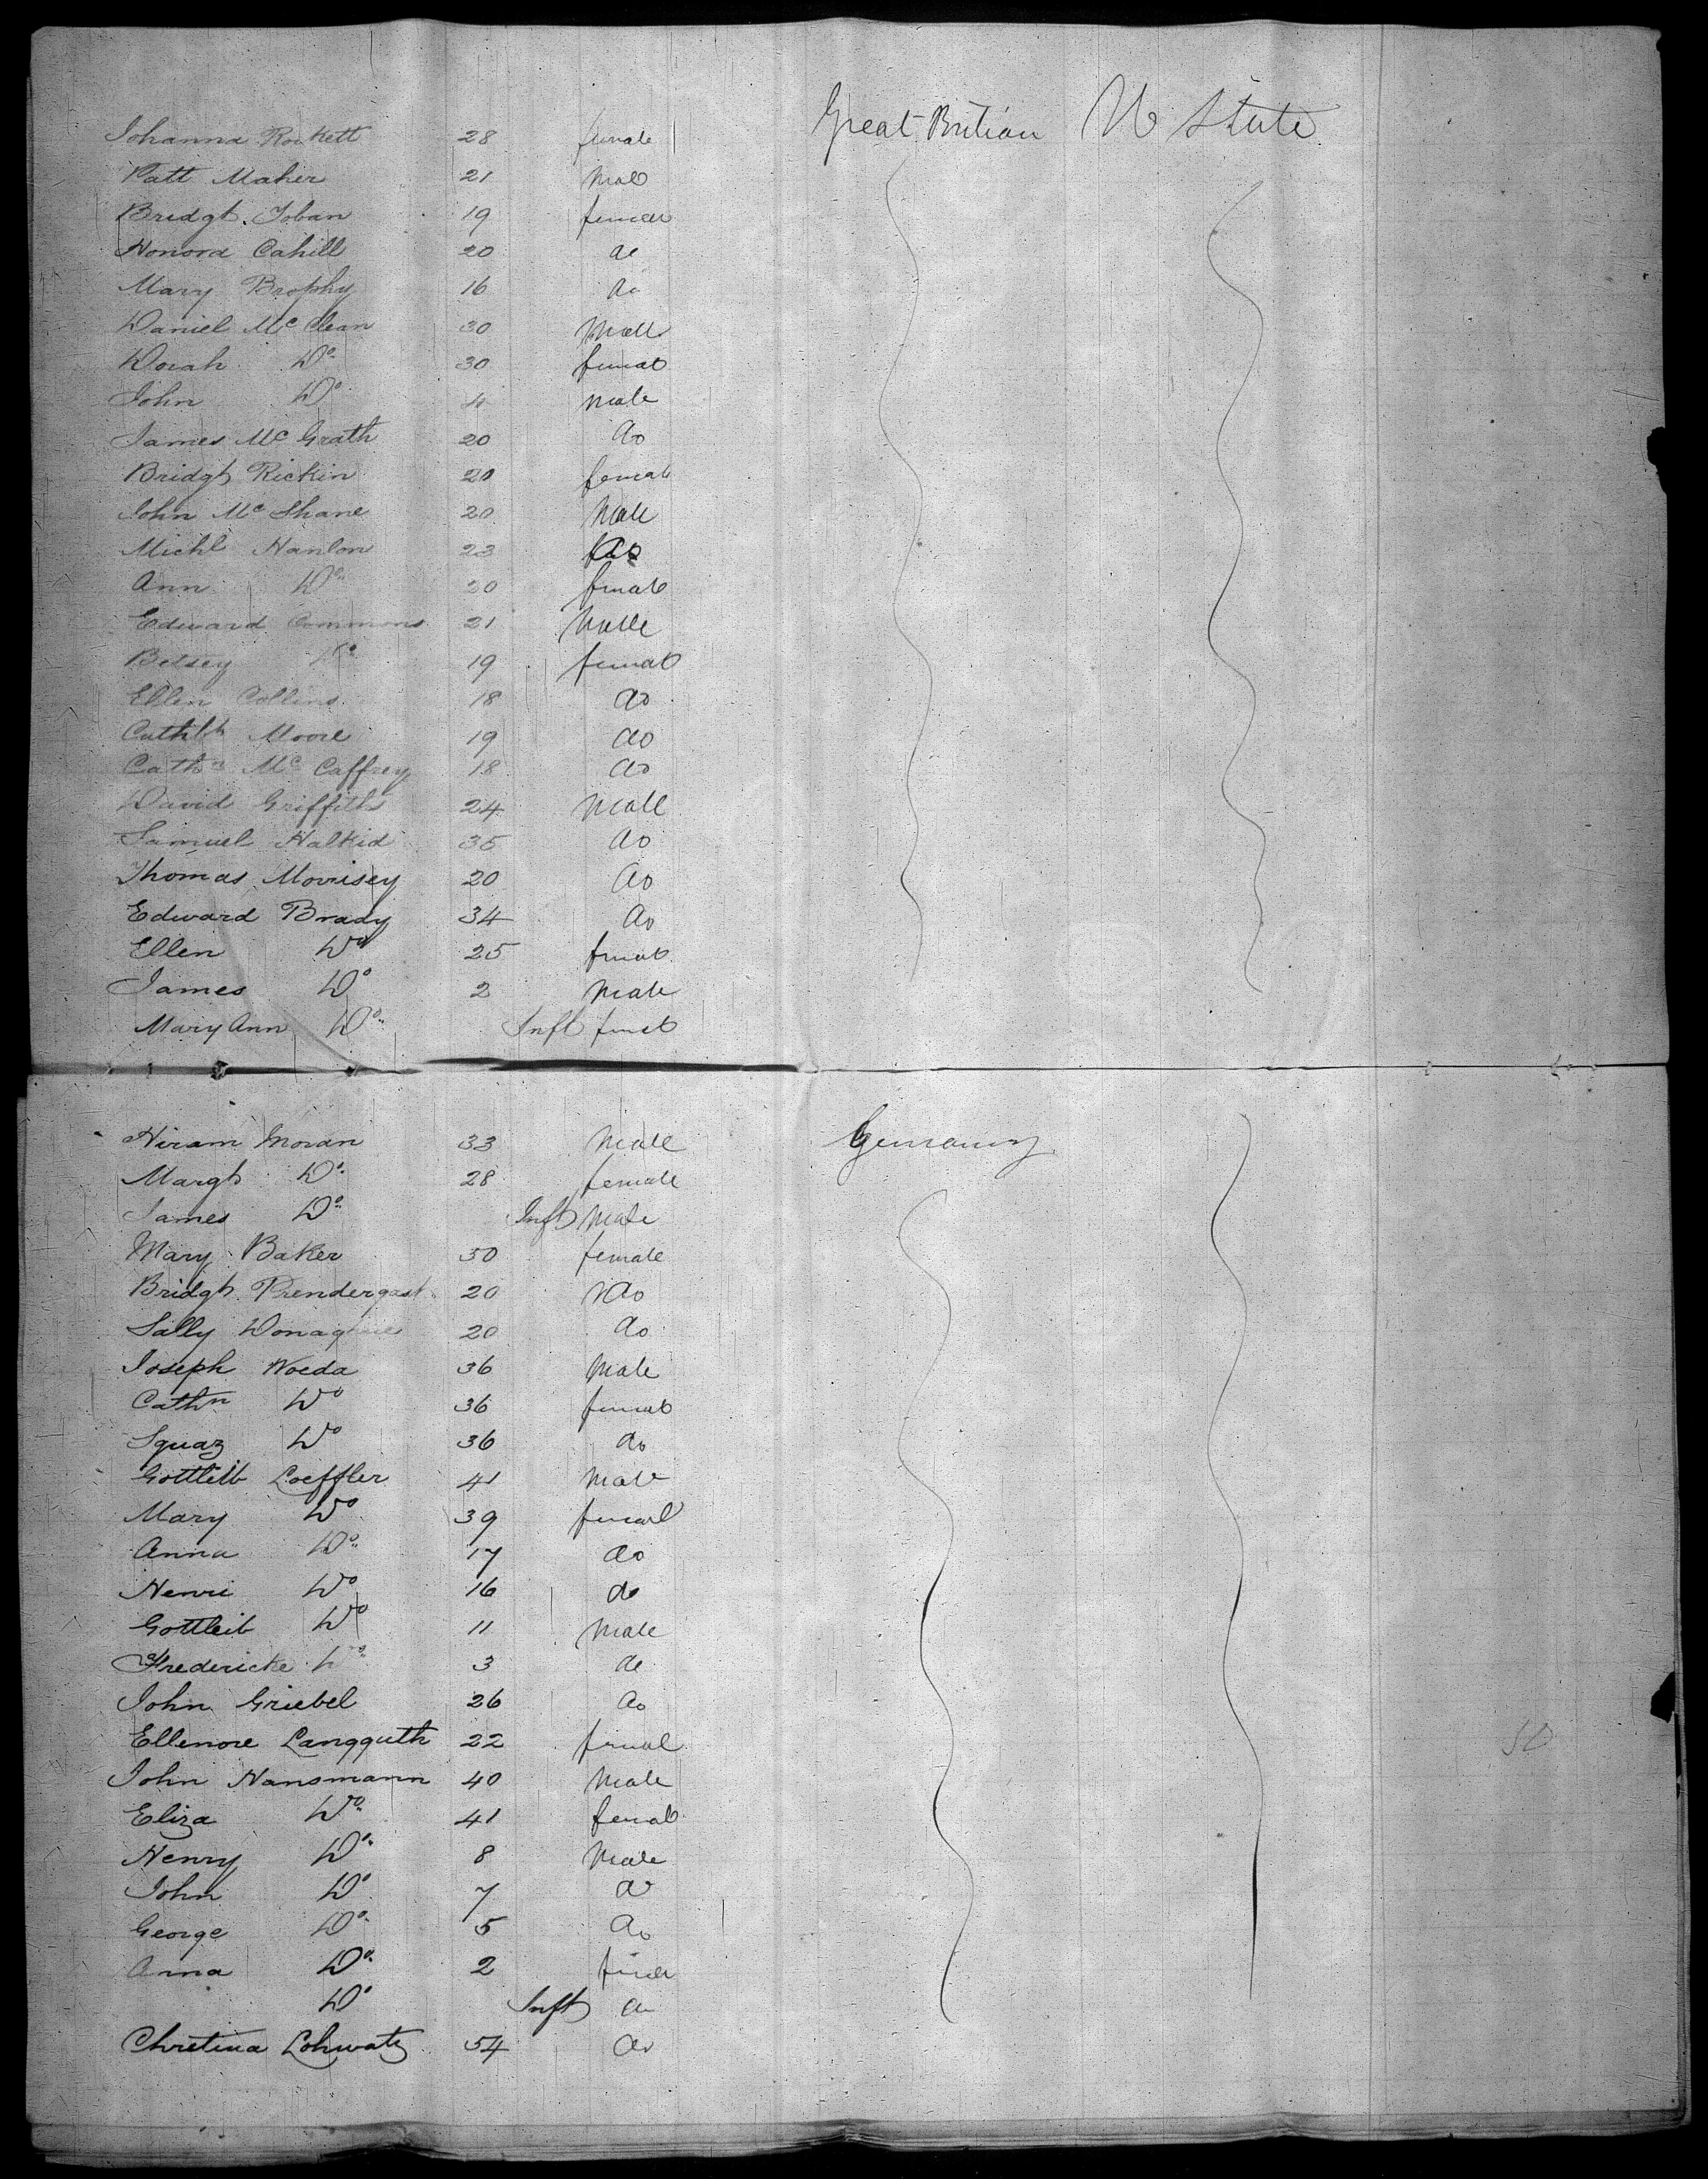 Johanna Rockett 28 female Great Britian U States
Patt Maher 21 Male
Bridgt. Toban 19 female
Honora Cahill 20 do
Mary Brophy 16 do
Daniel Mc Clean 30 Male
Dorah Do 30 female
John Do 4 male
James Mc Grath 20 do
Bridgt Rickin 20 female
John Mc Shane 20 Male
Michl Hanlon 23 do
Ann Do 20 female
Edward Commons 21 Male
Betsey Do 19 female
Ellen Collins 18 do
Moore 19 do
Cathn Mc Caffrey 18 do
David Griffiths 24 Male
Samuel Halkid 35 do
Thomas Morrisey 20 do
Edward Brady 34 do
Ellen Do 25 female
James Do 2 Male
Mary Ann Do Inft female
Hiram Moran 33 Male Germany
Margt Do 28 female
James Do Inft Male
Mary Baker 30 female
Bridgt Prendergast 20 do
Sally 20 do
Joseph Woeda 36 Male
Cathn Do 36 female
Iquaz Do 36 do
Gottleib Loeffler 41 Male
Mary Do 39 female
Anna Do 17 do
Henri Do 16 do
Gottleib Do 11 Male
Fredericke Do 3 do
John Griebel 26 do
Ellenore Langguth 22 female
John Hansmann 40 Male
Eliza Do 41 female
Henry Do 8 Male
John Do 7 do
George Do 5 do
Anna Do 2 female
Do Inft do
Christina Lohwatz 54 do